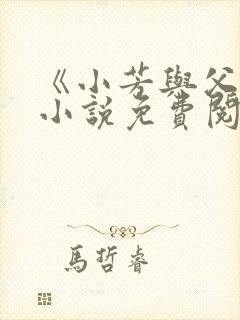 《小芳與父
小說免費閱
馬哲睿